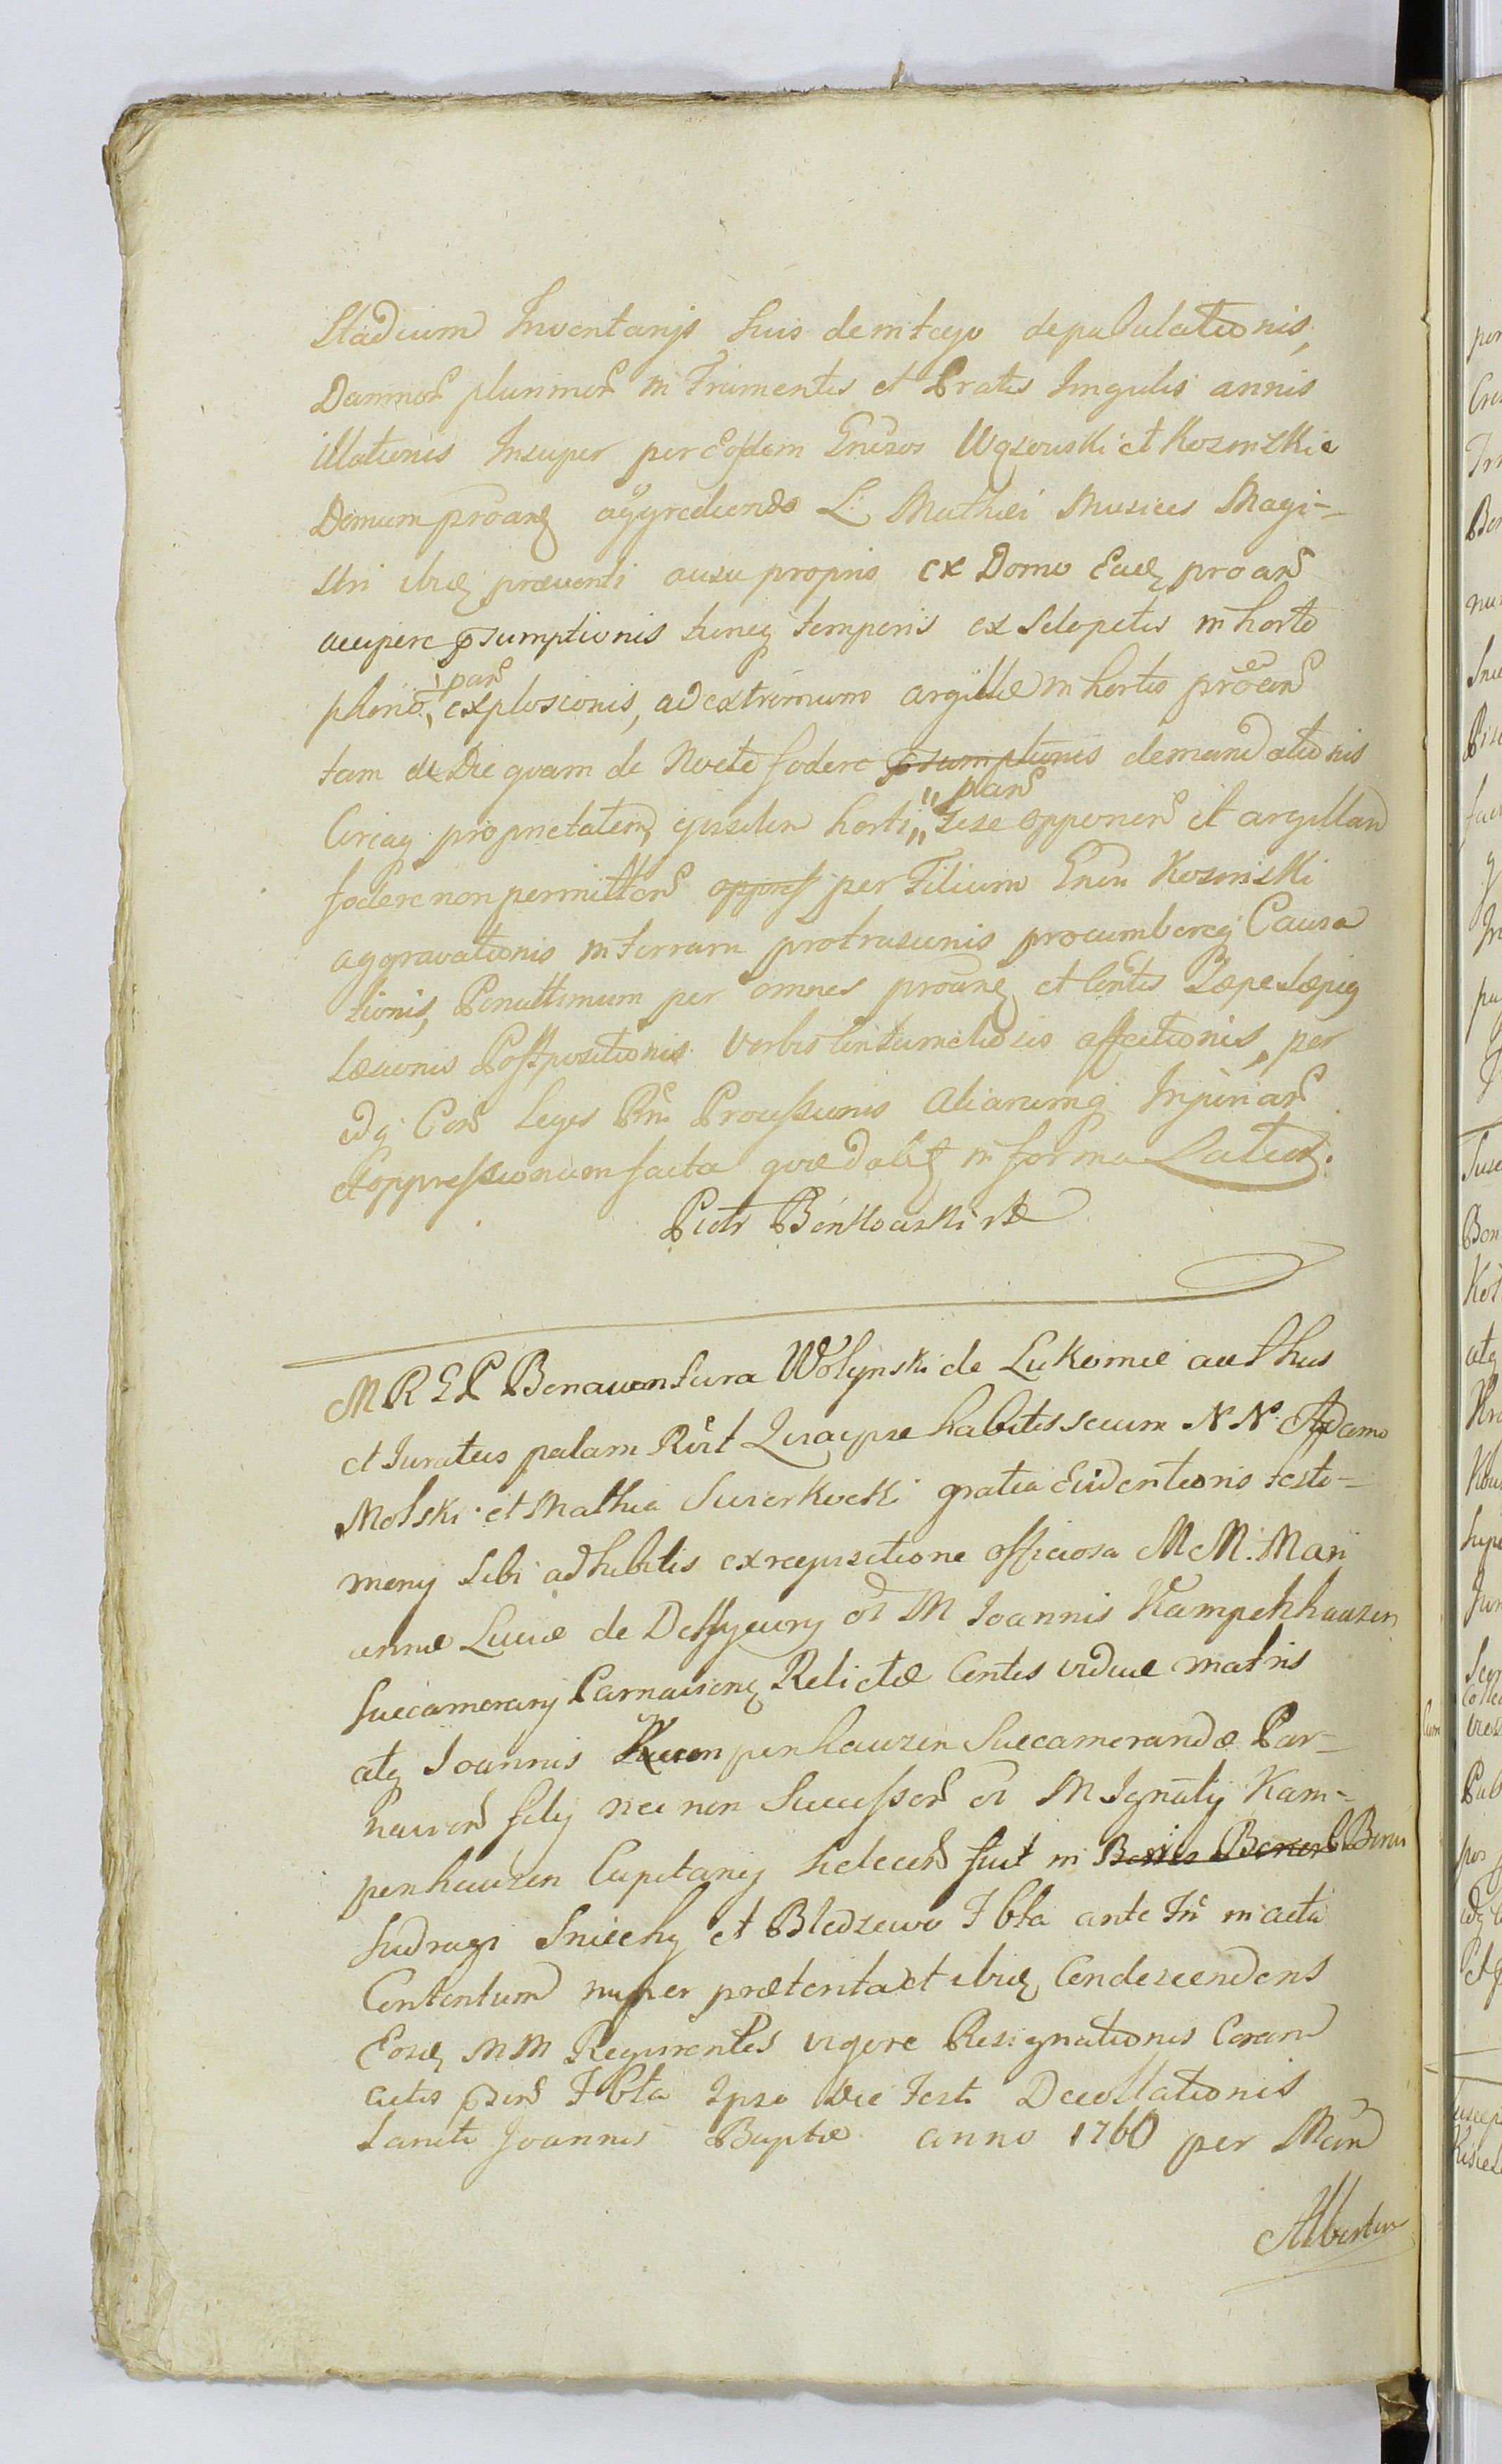 Stadium Inventarijs suis de intego depasulationis,
Damnor plurimor in Frumentis et Pratis Singulis annis
illationis Insuper per Eosdem Gnêsos Wąsowski et Kosinski e
Domum proarum aggrediendo L. Mathiei Musices Magi-
stri ibidem praeventi ausu proprio ex Domo Ead proar
accipere psumptionis tunc temporis ex Sclopetis in horto
par
explosionis, ad extremum argillae in hortis proar
tam de Die quam de Nocte fodere psumptionis demandationis
plar
Circaq proprietatem ejusdem horti, sese opponen et argillam
fodere non permitten oppress per Filium Gnêsi Kosinski
aggravationis in terram protrusionis procumbereq Causa
tionis, Penultimum per omnes proarum et Contis Saepe saepiq
Laesionis Postpositionis verbis contumeliosis affectionis, per
idq Con Leges Rni Processionis Aliarumq Injuriar
et oppressionum facta quae dabit in forma Latior.
Piotr Bońkowski
M R E P Bonawentura Wołynski de Lukomie authus
et Juratus palam Quiaipse habitis secum N N. Adamo
Molski et Mathia Swierkocki gratia Evidentioris testi-
monij sibi adhibitis ex requisitione officiosa M M. Mari
annae Luciae de ol M Joannis Kampenhauzen
Succamerarij Parnavien Relictae Contis viduae matris
atq Joannis Kampenhauzen Succameraridae Par-
navien filij nec non Successor ol M Ignatij Kam-
penhauzen Capitanei fuit in Bonis Boner Bonis
Sudragi Sniechy et Bledzewo Fbta ante in acta
Contentum nuper praeterita et ibidem Condescendens
Eosd M M Requirentes vigore Resignationis Coram
actis psen Fbta Ipso die Festi Decollationis
Sancti Joannis Baptae anno 1760 per Man
Albertum